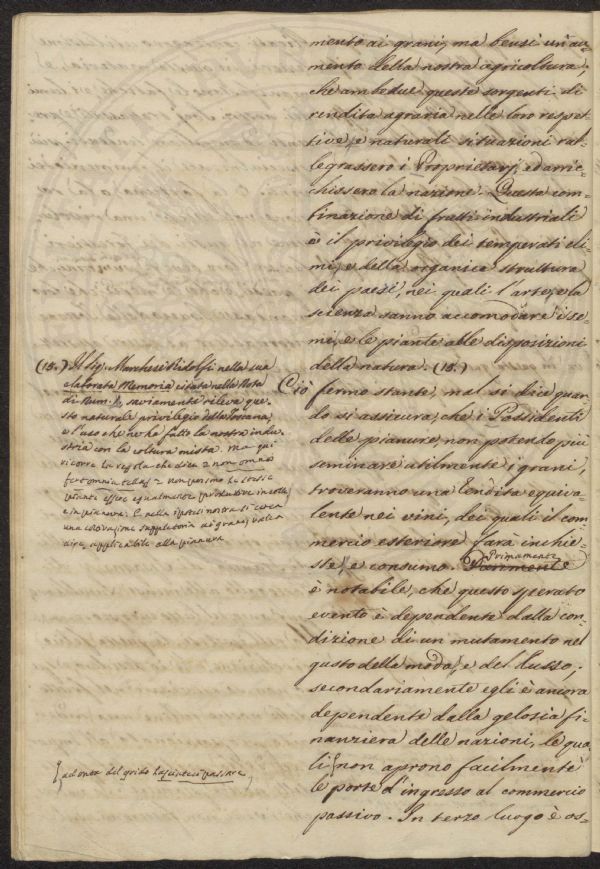 mento ai grani, ma bensì un au=
mento della nostra agricoltura,
che ambedue queste sorgenti di
rendita agraria nelle loro respet=
tive, e naturali situazioni ral=
legrassero i Proprietarj, ed arric=
chissero la nazione. Questa com=
binazione di frutti industriali
è il privilegio dei temperati cli=
mi, e della organica struttura
dei paesi, nei quali l'arte, e la
scienza sanno accomodare i se=
mi, e le piante alle disposizioni
della natura. (15.)
Ciò fermo stante, mal si dice quan=
do si assicura, che i Possidenti
delle pianure, non potendo più
seminare utilmente i grani,
troveranno una rendita equiva=
lente nei vini, dei quali il com
mercio esteriore farà inchie=
ste, e consumo. Primamente
è notabile, che questo sperato
evento è dependente dalla con=
dizione di un mutamento nel
gusto della moda, e del lusso;
secondariamente egli è ancora
dependente dalla gelosia fi=
nanziera delle nazioni, le qua
li non aprono facilmente
le porte d'ingresso al commercio
passivo. In terzo luogo è os=
(15.) Il Sig. Marchese Ridolfi nella sua
elaborata Memoria citata nella Nota
di Num. saviamente rileva que=
sto naturale privilegio della Toscana,
e l'uso che ne ha fatto la nostra indu=
stria con la coltura mista. Ma qui
ricorre la regola che dice non omnis
fert omnia tellus non possono le stesse
piante essere egualmente produttive in colle,
e in pianura. E nella ipotesi nostra si cerca
una coltivazione suppletoria ai grani, vale a
dire, applicabile alla pianura
ad onta del grido Lasciateci passare,